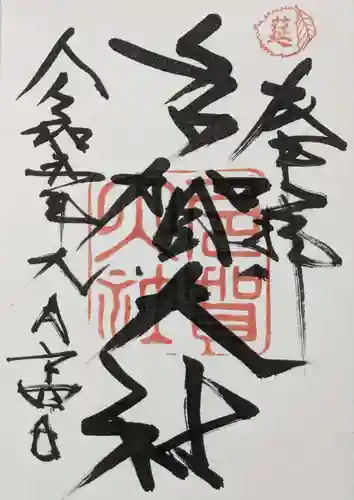 莚
奉拝
多賀大社
多賀大社
令和五年六月